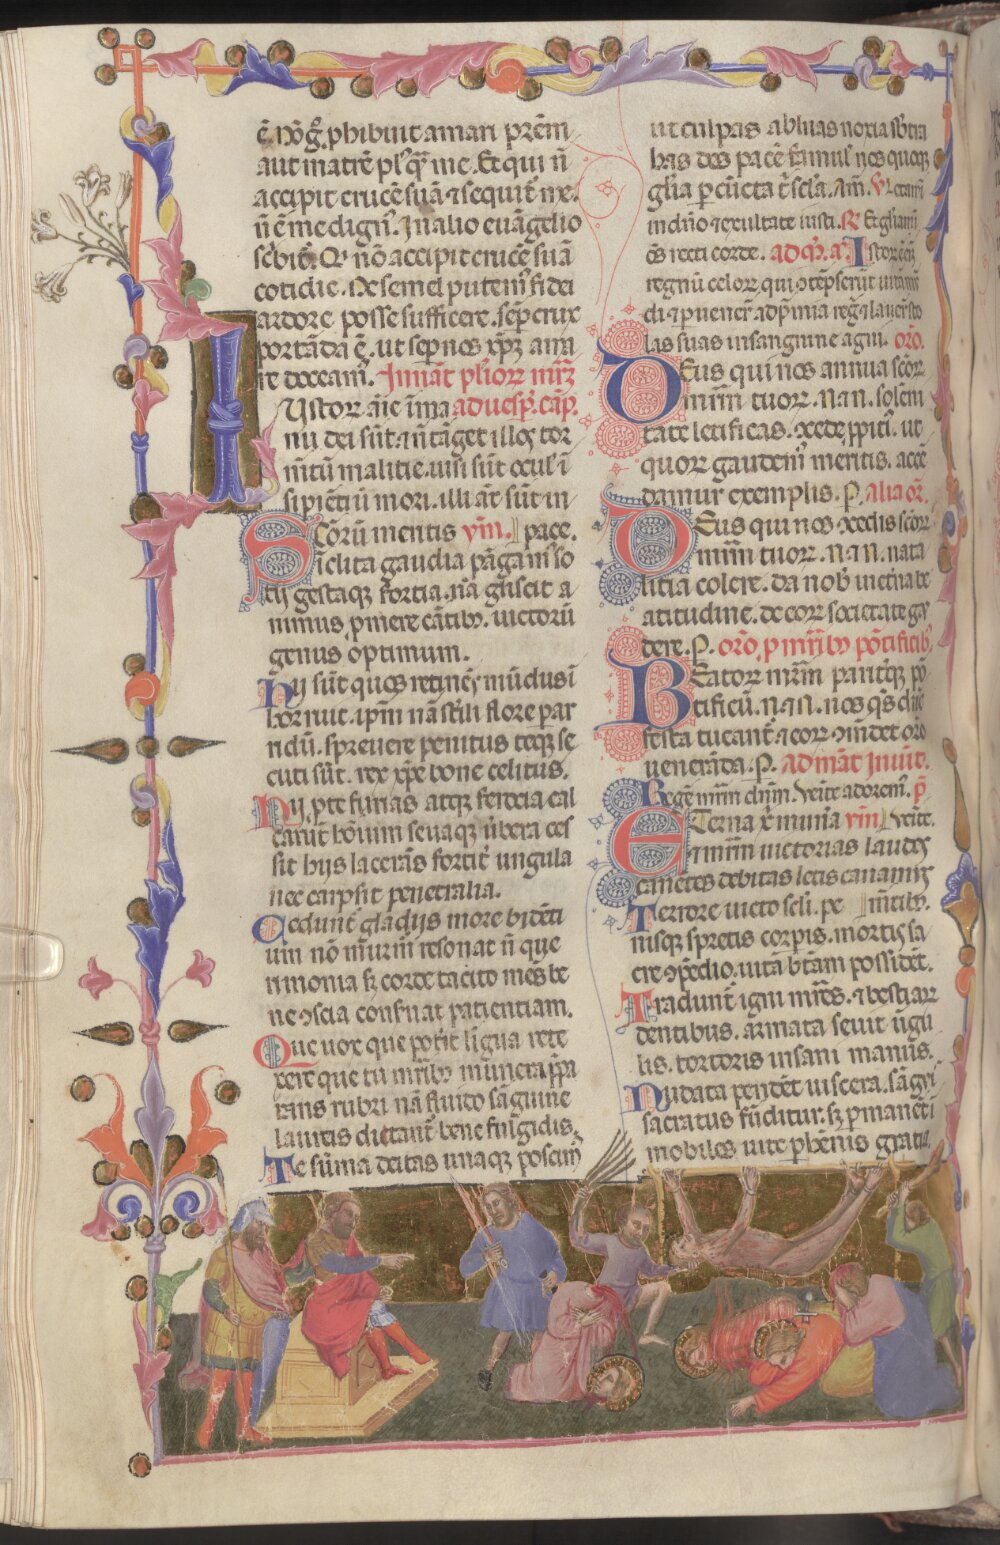 ē. Nō g̃ ꝓhibuit amari pr̄em
aut matrē pl'q̄ me. Et qui n̄
accipit crucē suā ⁊ sequit᷑ me.
n̄ ē me dign᷒. In alio euāgelio
sc̄bit᷑. Q' nō accipit crucē suā
cotidie. Ne semel putem᷒ fidei
ardore posse sufficere. sēp crux
portāda ē. ut sēp nos xp̄m ama
re doceam᷒. In nat᷑ pl'ioꝝ mr̄ꝝ
Iustoꝝ aīe ī ma ad uesp̄. cap̄.
nu dei sūt. ⁊ n̄ tāget illos tor
mt̄ū malitie. uisi sūt ocul' ī
sipiētiū mori. illi at̄ sūt in
Sc̄orū meritis ym̄. pace.
īclita gaudia pāgam᷒ so
cij gestaqꝫ fortia. nā gliscit a
nimus ꝓmere cātibꝫ. uictorū
genus optimum.
Hij sūt quos retinēs mūdus ī
hornuit. ip̄m nā st̄ili flore per
ridū. spreuere penitus teqꝫ se
cuti sūt. rex xp̄e bone celitus.
Hij ꝓ te furias atqꝫ ferocia cal
carūt hoīum seuaqꝫ ūbera ces
sit hijs lacerās fortit᷑ ungula
nec carpsit penetralia.
Cedunt᷑ gladijs more bidēti
um nō mūrm᷑ resonat n̄ que
rimonia sꝫ corde tacito mēs be
ne ꝯscia conseruat patientiam.
Que uox que pot̄it ligua rete
xere que tu mr̄ibꝫ munera p̄pa
ras rubri nā fluido sāguine
laureis ditant᷑ bene fulgidis.
Te sūma deitas unaqꝫ poscim᷒
ut culpas abluas noxia sb̄tra
has des pacē famul' nos quoqꝫ
gl̄ia ꝑ cūcta t᷑ sc̄la. am̄. V' Letam̄
in dn̄o ⁊ exultate iusti. R' Et gl̄iam̄
oēs recti corde. ad m̄. a. Istoꝝ ē eī
regnū celoꝝ qui ꝯtēpserūt uitā mū
di ⁊ ꝑuener̄t ad p̄mia reg̃ ⁊ lauer̄t sto
las suas in sanguine agni. or̄o.
Deus qui nos annua sc̄oꝝ
mr̄m tuoꝝ. N. ⁊ N. solem
tate letificas. ꝯcede ꝓpiti᷒. ut
quoꝝ gaudem᷒ meritis. accē
damur exemplis. P. alia or̄.
Deus qui nos ꝯcedis sc̄oꝝ
mr̄m tuoꝝ. N. ⁊ N. nata
litia colere. da nob' in et̄na be
atitudine. de eoꝝ societate ga
dere. P. or̄o ꝓ mr̄ibꝫ pōtificibꝫ
Beatoꝝ mr̄m pariterqꝫ pō
tificū. N. ⁊ N. nos q̄s dn̄e
festa tueant᷑ ⁊ eoꝝ ꝯmēdet or̄o
uenerāda. P. ad mat̄ Inuit᷑.
Regē mr̄m dn̄m. Venite adorem᷒. p̄
Eterna x̄ munera ym̄ Venite.
⁊ mr̄m uictorias laudes
canētes debitas letis canamus
Terrore uicto sc̄li. pe mētibꝫ.
nisqꝫ spretis corꝑis. mortis sa
cre ꝯpēdio. uitā bt̄am possidēt.
Tradunt᷑ igni mr̄es. ⁊ bestiaꝝ
dentibus. armata seuit ūgu
lis. tortoris insani manus.
Nudata pendēt uiscera. sāgui
sacratus fūditur. sꝫ ꝑmanēt ī
mobiles uite ꝑhennis gratia.